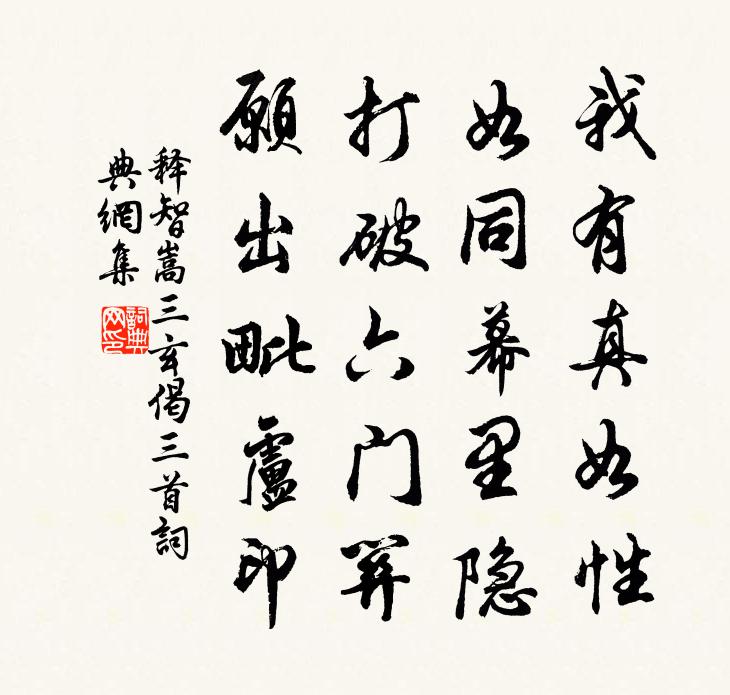 我有真如性
如同幕里隐
打破六门关
願出毗盧印
释智嵩三玄偈三首詞
典網集
詞典
网印